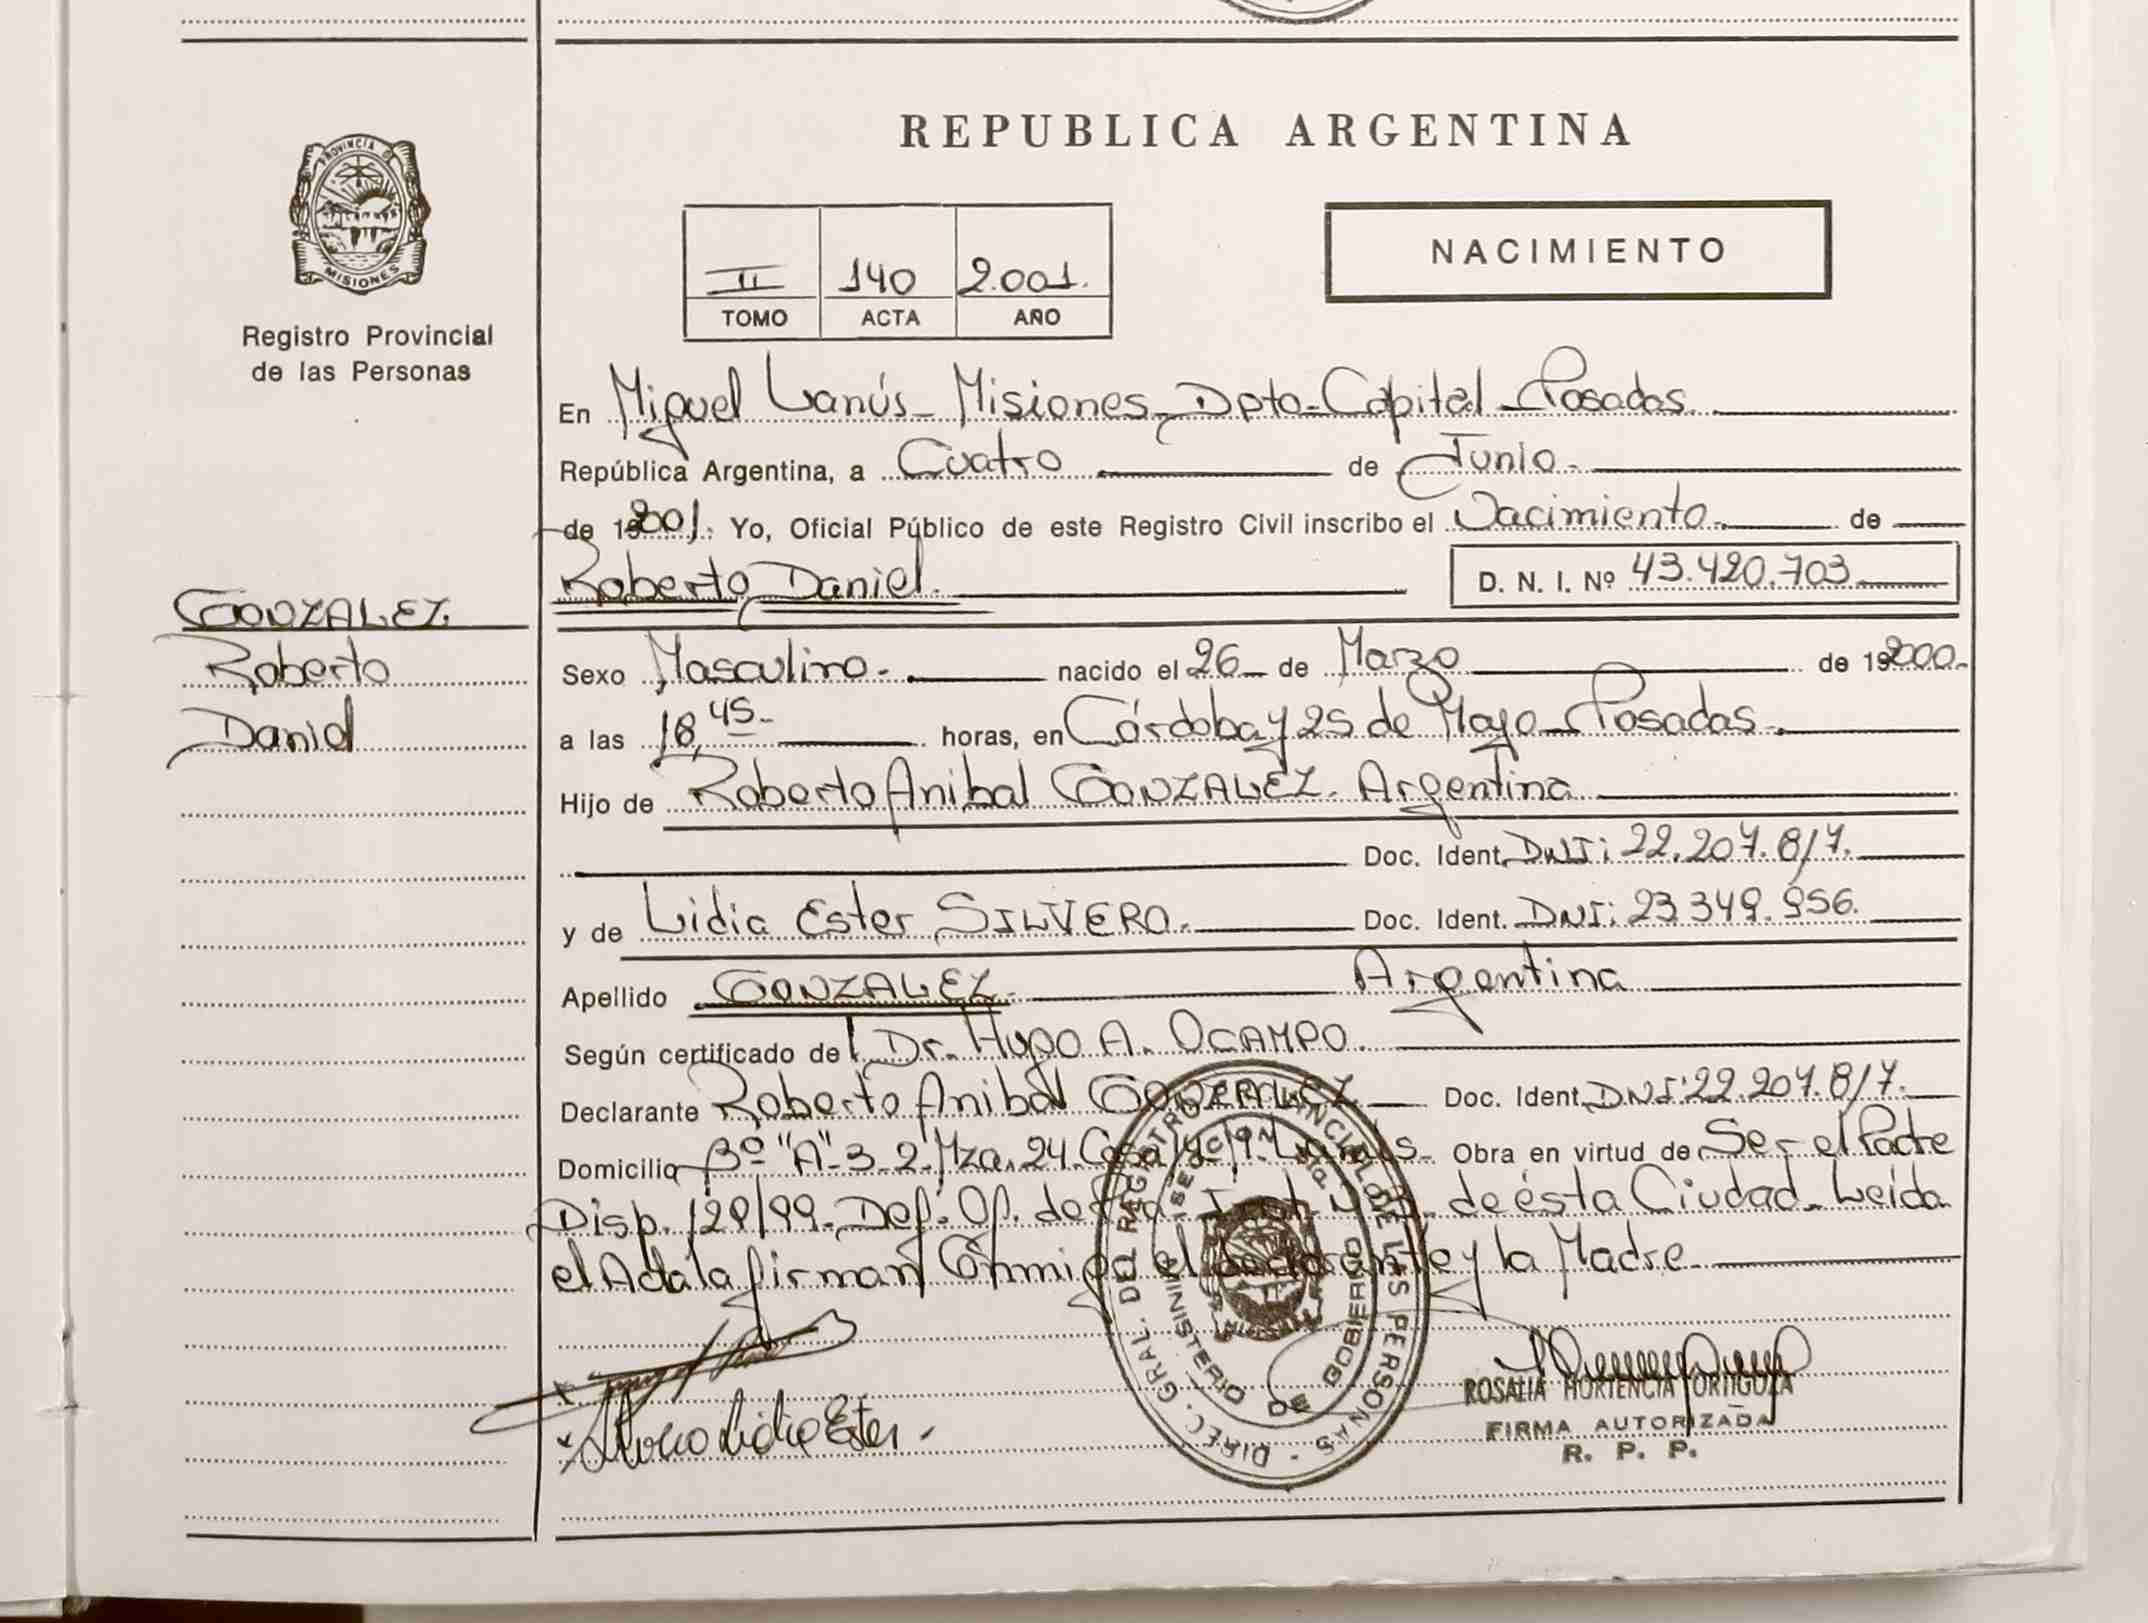 PROVINCIA DE
MISIONES
Registro Provincial
de las Personas
REPUBLICA ARGENTINA
II 140 2.001.
TOMO ACTA AÑO
NACIMIENTO
En Miguel Lanús - Misiones - Dpto - Capital - Posadas.
República Argentina, a Cuatro de Junio.
de 19 2001. Yo, Oficial Público de este Registro Civil inscribo el Nacimiento. de
Roberto Daniel. D. N. I. Nº 43.420.703
GONZALEZ.
Roberto
Daniel
Sexo Masculino. nacido el 26 de Marzo de 19 2000.
a las 18,45 horas, en Córdoba y 25 de Mayo - Posadas.
Hijo de Roberto Anibal GONZALEZ. Argentina
Doc. Ident. DNI: 22.207.817.
y de Lidia Ester SILVERO. Doc. Ident. DNI: 23.349.956.
Apellido GONZALEZ. Argentina
Según certificado de Dr. Hugo A. OCAMPO.
Declarante Roberto Anibal GONZALEZ Doc. Ident. DNI: 22.207.817.
Domicilio Bº "A" 3-2 Mza. 24 Casa Lanús - Obra en virtud de Ser el Padre
Disp. 129/99 - Def. Of. de de ésta Ciudad - Leída
el Acta la firman Conmigo el declarante y la Madre
Silvero Lidia Ester.
DIREC. GRAL. DEL REGISTRO PROVINCIAL DE LAS PERSONAS
MINISTERIO DE GOBIERNO
ROSALIA HORTENCIA ORTIGOZA
FIRMA AUTORIZADA
R. P. P.